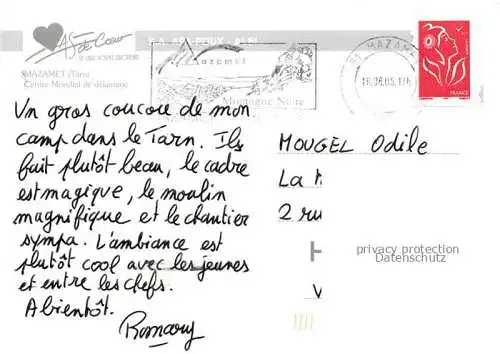 As de Cœur
MAZAMET (Tarn)
Centre Mondial de délainage
APA-POUX - ALBI
Mazamet
Montagne Noire
81 MAZAMET
18.08.05
FRANCE
Un gros coucou de mon
camp dans le Tarn. Ils
fait plutôt beau, le cadre
est magique, le moulin
magnifique et le chantier
sympa. L'ambiance est
plutôt cool avec les jeunes
et entre les chefs.
A bientôt.
Romary
MOUGEL Odile
La
2 rue
privacy protection
Datenschutz